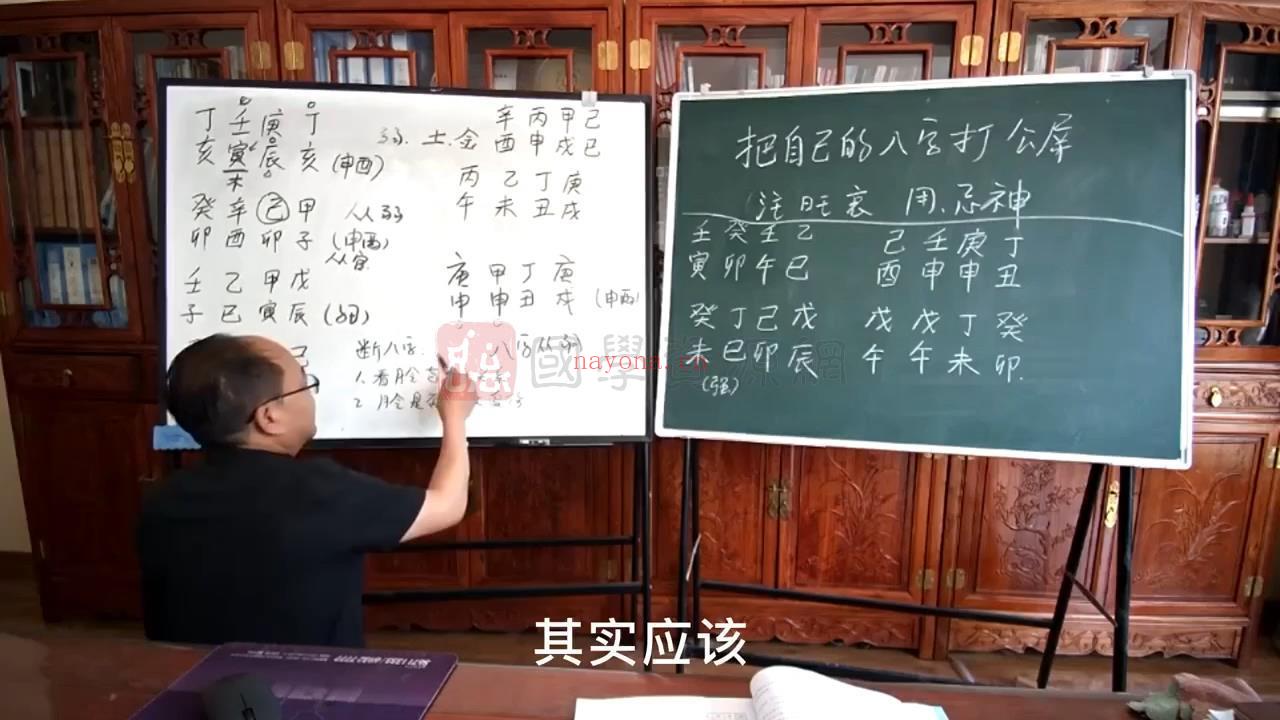 丁 壬 庚 丁
亥 寅 辰 亥 (申酉)
未
弱. 土. 金
辛 丙 甲 己
酉 申 戌 巳
癸 辛 己 甲 从弱
卯 酉 卯 子 (申酉)
从官
丙 乙 丁 庚
午 未 丑 戌
壬 乙 甲 戊
子 巳 寅 辰 (弱)
庚 甲 丁 庚
申 申 丑 戌 (申酉)
己
断八字
八字从弱
1. 看
2.
把自己的八字打公屏
(注旺衰 用、忌神
壬 癸 壬 乙
寅 卯 午 巳
己 壬 庚 丁
酉 申 申 丑
癸 丁 己 戊
未 巳 卯 辰
(强)
戊 戊 丁 癸
午 午 未 卯.
nayona.cn
其实应该